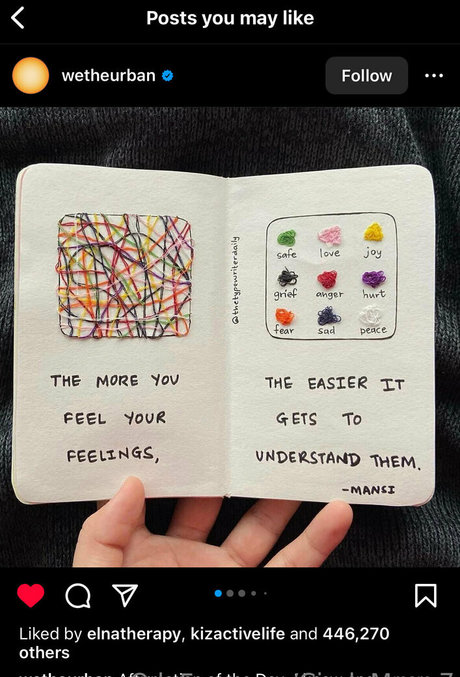 Posts you may like
wetheurban
Follow
@thetypewriterdaily
safe love joy
grief anger hurt
fear sad peace
THE MORE YOU
FEEL YOUR
FEELINGS,
THE EASIER IT
GETS TO
UNDERSTAND THEM.
-MANSI
Liked by elnatherapy, kizactivelife and 446,270
others